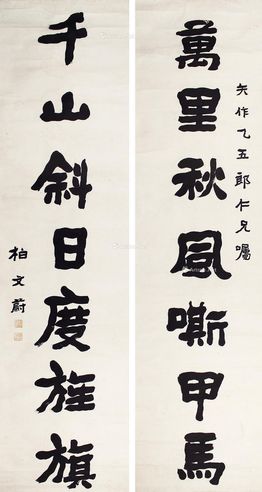 萬里秋風嘶甲馬
五郎仁兄囑
千山斜日度旌旗
柏文蔚